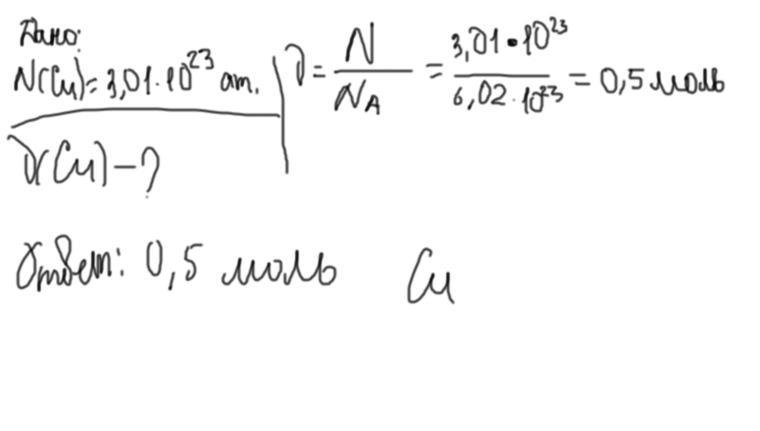 Дано:
N(Cu)=3,01·10²³ ат.
ν(Cu)-?
ν = N/N_A = 3,01·10²³/6,02·10²³ = 0,5 моль
Ответ: 0,5 моль Cu